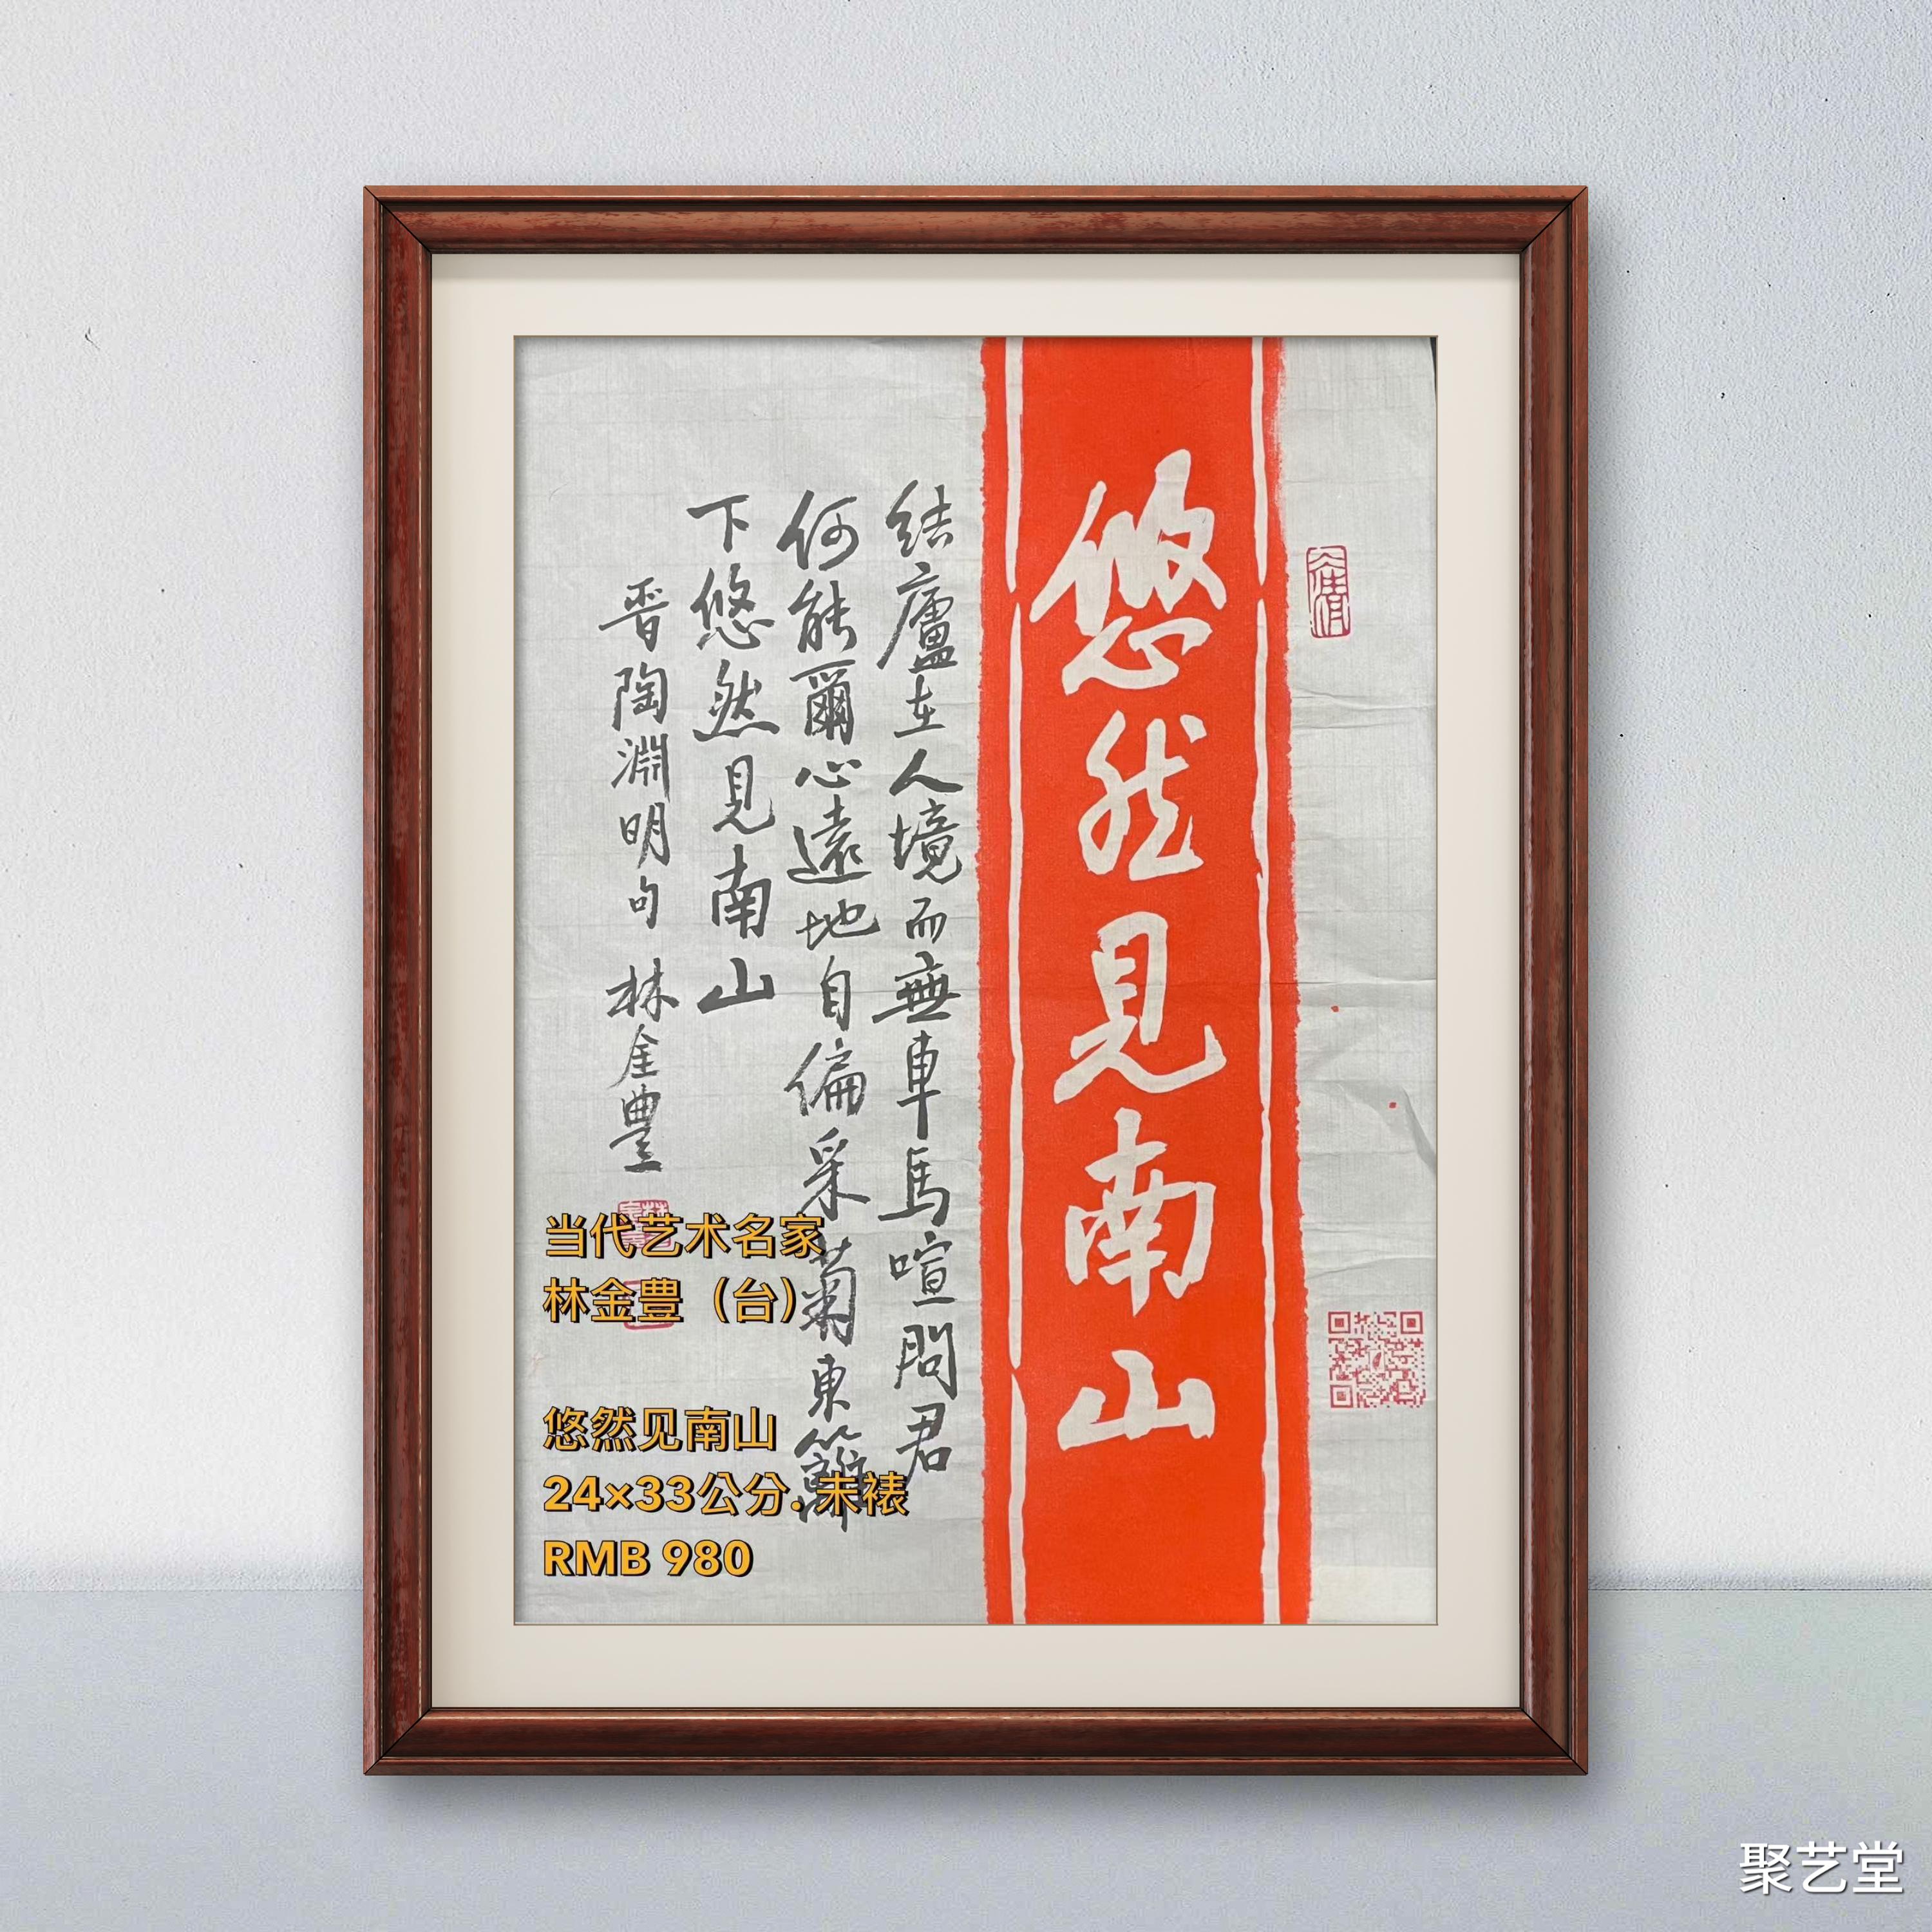 悠然見南山
结廬在人境而無車馬喧問君
何能爾心遠地自偏采菊東籬
下悠然見南山
晋陶淵明句 林金豊
当代艺术名家
林金豊（台）
悠然见南山
24×33公分. 未裱
RMB 980
聚艺堂